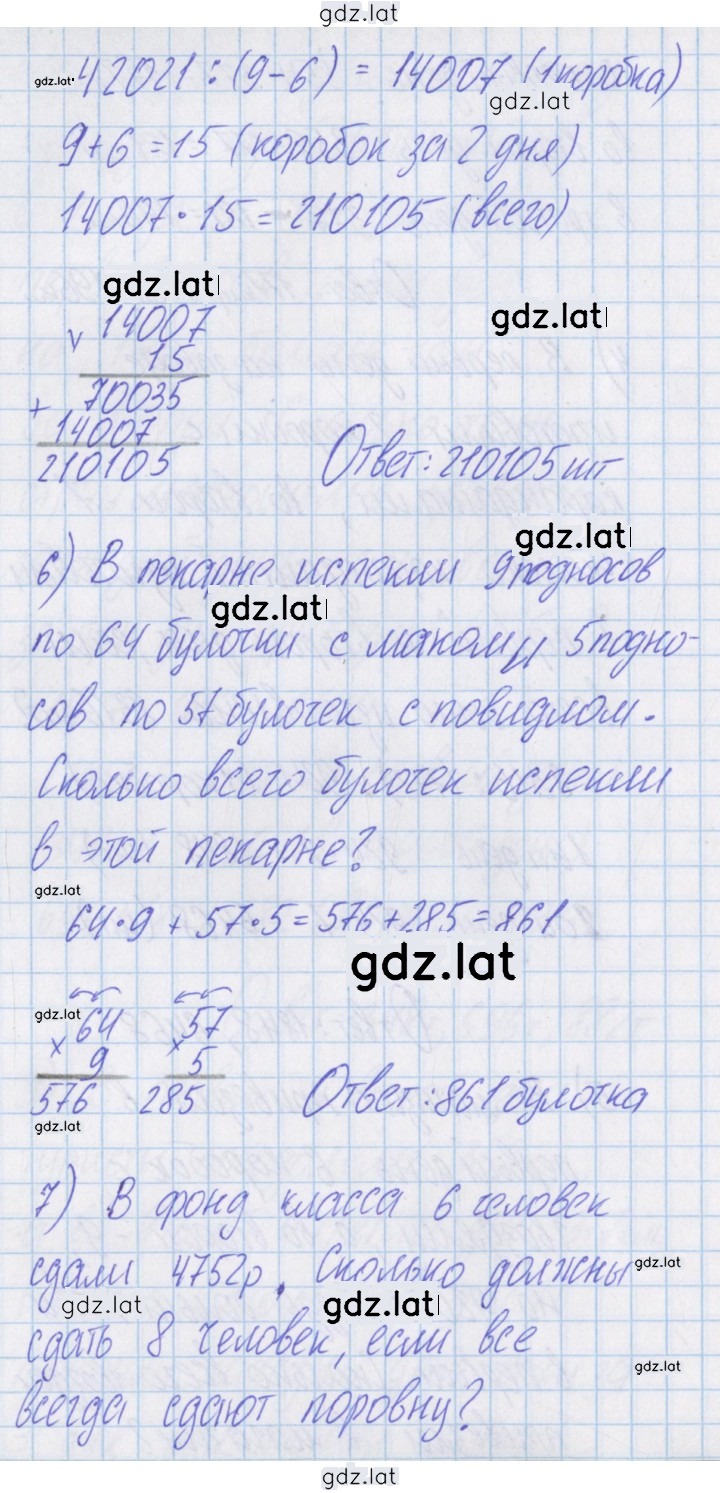 gdz.lat
gdz.lat 42021 : (9-6) = 14007 (1 коробка)
gdz.lat
9+6 = 15 (коробок за 2 дня)
14007 · 15 = 210105 (всего)
gdz.lat
gdz.lat
× 14007
15
+ 70035
14007
210105
Ответ: 210105 шт
gdz.lat
6) В пекарне испекли 9 подносов
gdz.lat
по 64 булочки с маком и 5 подно-
сов по 57 булочек с повидлом.
Сколько всего булочек испекли
в этой пекарне?
gdz.lat
64·9 + 57·5 = 576+285 = 861
gdz.lat
gdz.lat
× 64 × 57
9 5
576 285
Ответ: 861 булочка
gdz.lat
7) В фонд класса 6 человек
сдали 4752р. Сколько должны
gdz.lat
gdz.lat gdz.lat
сдать 8 человек, если все
gdz.lat
всегда сдают поровну?
gdz.lat